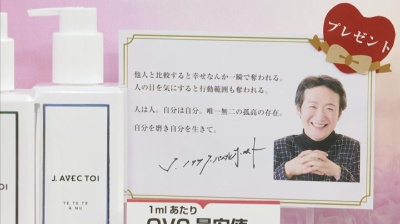 プレゼント
他人と比較すると幸せなんか一瞬で奪われる。
人の目を気にすると行動範囲も奪われる。
人は人。自分は自分。唯一無二の孤高の存在。
自分を磨き自分を生きて。
J. AVEC TOI
TE TE TE
A NU
1mlあたり
最安値